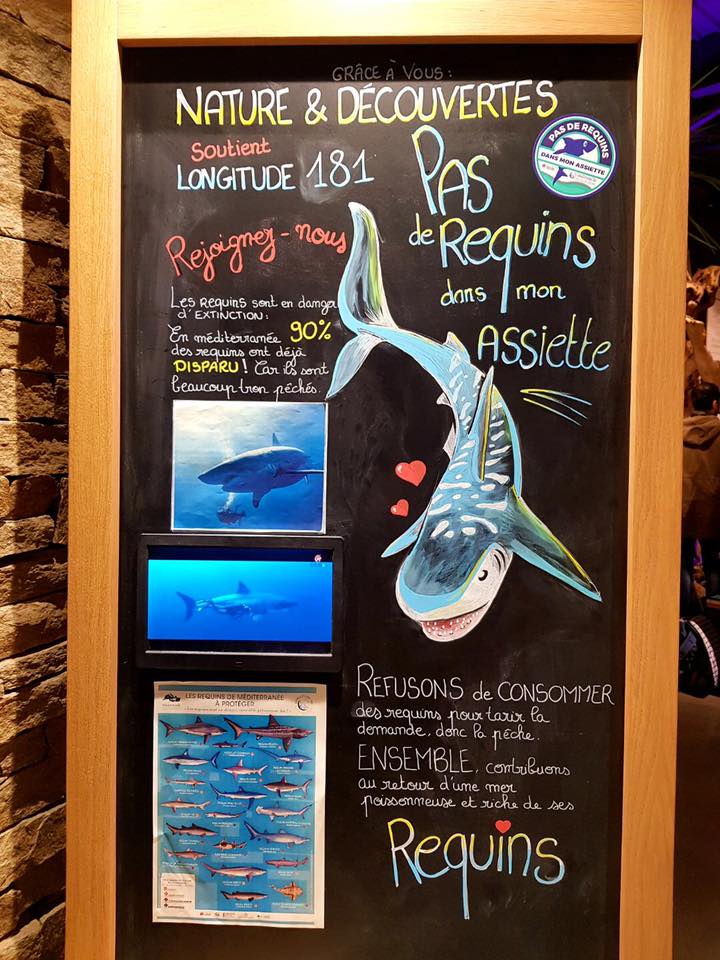 GRÂCE À VOUS :
NATURE & DÉCOUVERTES
Soutient
LONGITUDE 181
PAS DE REQUINS
DANS MON ASSIETTE
Pas
de Requins
dans mon
ASSiette
Rejoignez-nous
LES REQUINS SONT EN DANGER
D'EXTINCTION :
En méditerranée 90%
des requins ont déjà
DISPARU ! Car ils sont
beaucoup trop pêchés.
LES REQUINS DE MÉDITERRANÉE
À PROTÉGER
REFUSONS de CONSOMMER
des requins pour tarir la
demande, donc la pêche.
ENSEMBLE, contribuons
au retour d'une mer
poissonneuse et riche de ses
Requins